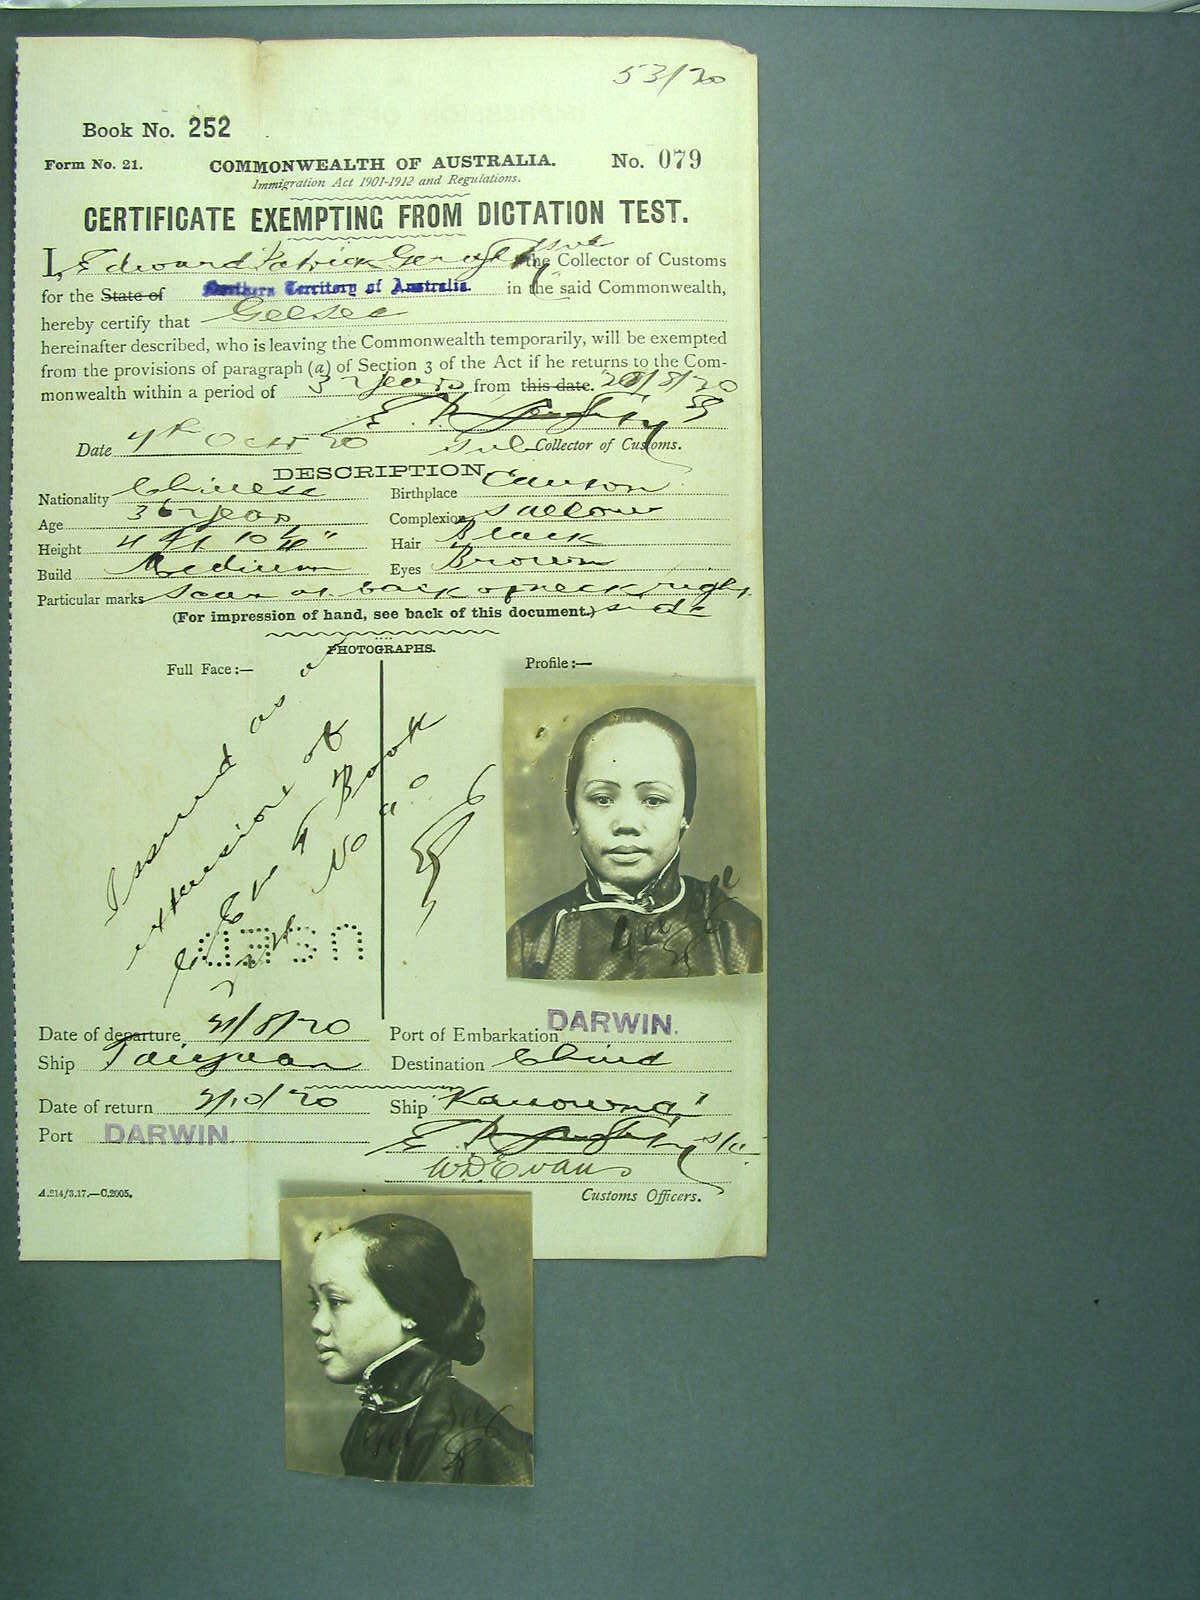 53/20
Book No. 252
Form No. 21. COMMONWEALTH OF AUSTRALIA. No. 079
Immigration Act 1901-1912 and Regulations.
CERTIFICATE EXEMPTING FROM DICTATION TEST.
I, Edward Patrick the Collector of Customs
for the State of Northern Territory of Australia. in the said Commonwealth,
hereby certify that
hereinafter described, who is leaving the Commonwealth temporarily, will be exempted
from the provisions of paragraph (a) of Section 3 of the Act if he returns to the Com-
monwealth within a period of 3 years from this date.
Date 4th Octr 20 Collector of Customs.
DESCRIPTION.
Nationality Chinese Birthplace Canton
Age 36 years Complexion Sallow
Height 4 ft 10 1/4" Hair Black
Build Medium Eyes Brown
Particular marks Scar at back of neck right
(For impression of hand, see back of this document.) side
PHOTOGRAPHS.
Full Face:— Profile:—
Issued as a
extension of
Book
No
USED
Date of departure /8/20 Port of Embarkation DARWIN.
Ship Taiyuan Destination China
Date of return /10/20 Ship "Kanowna"
Port DARWIN
W.D. Evans
A.214/3.17.—C.2005. Customs Officers.